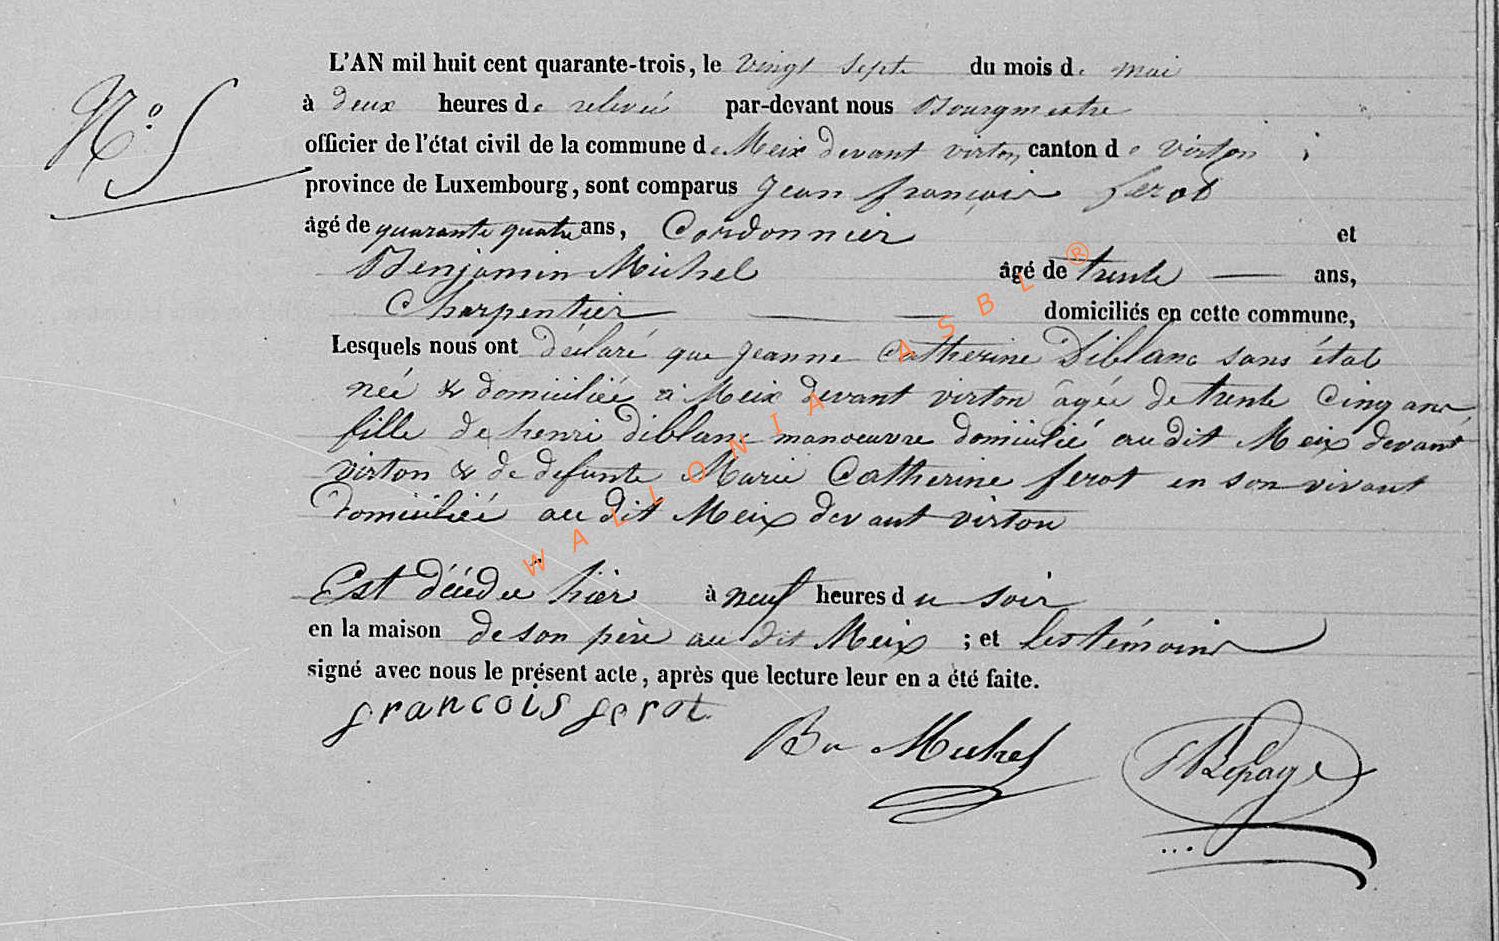 N.° 5
L'AN mil huit cent quarante-trois, le vingt Sept du mois de mai
à deux heures de relevée par-devant nous Bourgmestre
officier de l'état civil de la commune de Meix devant virton canton de virton ;
province de Luxembourg, sont comparus Jean françois ferot
âgé de quarante quatre ans, Cordonnier et
Benjamin Michel âgé de trente ans,
Charpentier domiciliés en cette commune,
Lesquels nous ont déclaré que Jeanne Catherine Diblanc sans état
née & domiciliée à Meix devant virton âgée de trente Cinq ans
fille de henri diblanc manoeuvre domicilié au dit Meix devant
virton & de defunte Marie Catherine ferot en son vivant
domiciliée au dit Meix devant virton
Est décédée hier à neuf heures du soir
en la maison de son père au dit Meix ; et Les témoins
signé avec nous le présent acte, après que lecture leur en a été faite.
francois ferot
Bn Michel
Lepage
WALLONIA ASBL ®